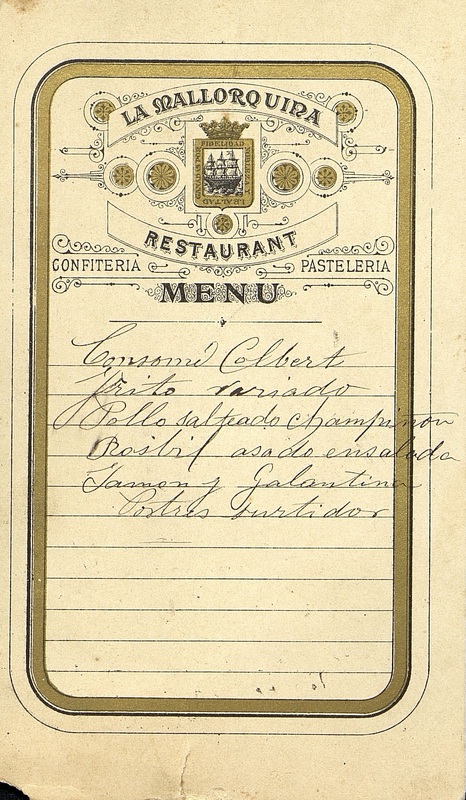 LA MALLORQUINA
FIDELIDAD
NOBLEZA Y
LEALTAD
RESTAURANT
CONFITERIA PASTELERIA
MENU
Consomé Colbert
Frito variado
Pollo salteado champiñon
Rosbif asado ensalada
Jamon y Galantina
Postres surtidos